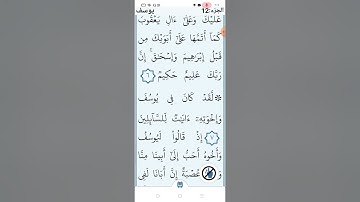 الجزء:12 يوسف
عَلَيْكَ وَعَلَىٰٓ ءَالِ يَعْقُوبَ
كَمَآ أَتَمَّهَا عَلَىٰٓ أَبَوَيْكَ مِن
قَبْلُ إِبْرَٰهِيمَ وَإِسْحَٰقَ ۚ إِنَّ
رَبَّكَ عَلِيمٌ حَكِيمٌ ٦
۞ لَّقَدْ كَانَ فِى يُوسُفَ
وَإِخْوَتِهِۦٓ ءَايَٰتٌ لِّلسَّآئِلِينَ
٧ إِذْ قَالُوا۟ لَيُوسُفُ
وَأَخُوهُ أَحَبُّ إِلَىٰٓ أَبِينَا مِنَّا
عُصْبَةٌ إِنَّ أَبَانَا لَفِى